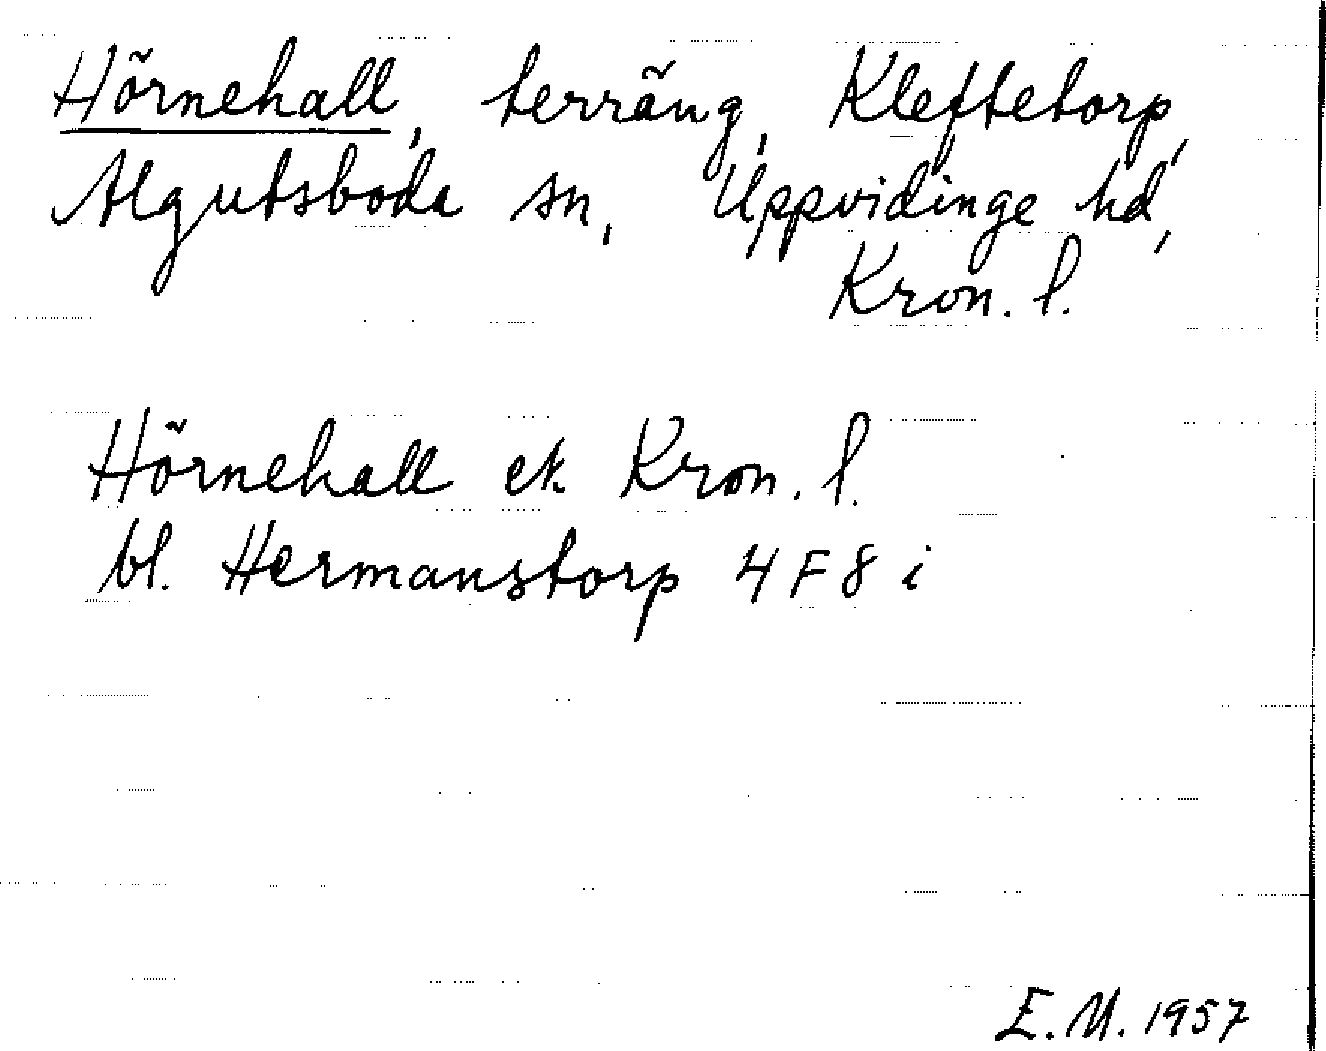 Hörnehall, terräng, Kleftetorp,
Algutsboda sn, Uppvidinge hd,
Kron. l.
Hörnehall ek. Kron. l.
bl. Hermanstorp 4F8i
E.M. 1957